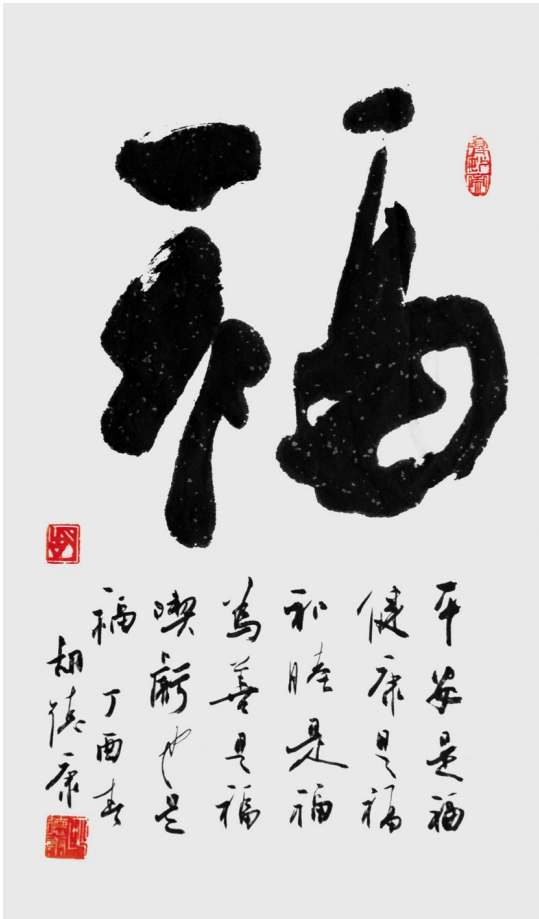 福
平安是福
健康是福
和睦是福
為善是福
喫虧也是
福 丁酉春
胡德康